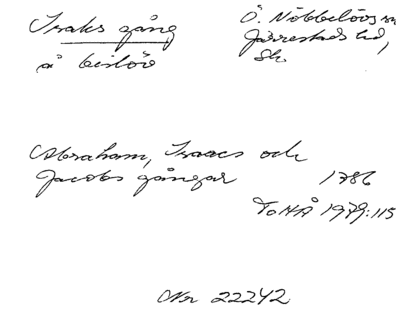 Isaks gång
Ö. Nöbbelövs sn
Järrestads hd,
Sk.
Abraham, Isaacs och
Jacobs gångar 1786
ToHÅ 1979:115
Nr 22242